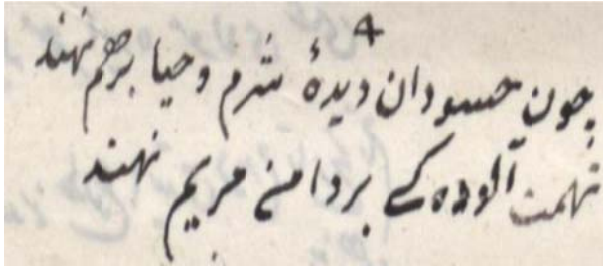 ۴
چون حسودان دیدهٔ شرم و حیا بر هم نهند
تهمت آلوده کے بر دامن مریم نهند